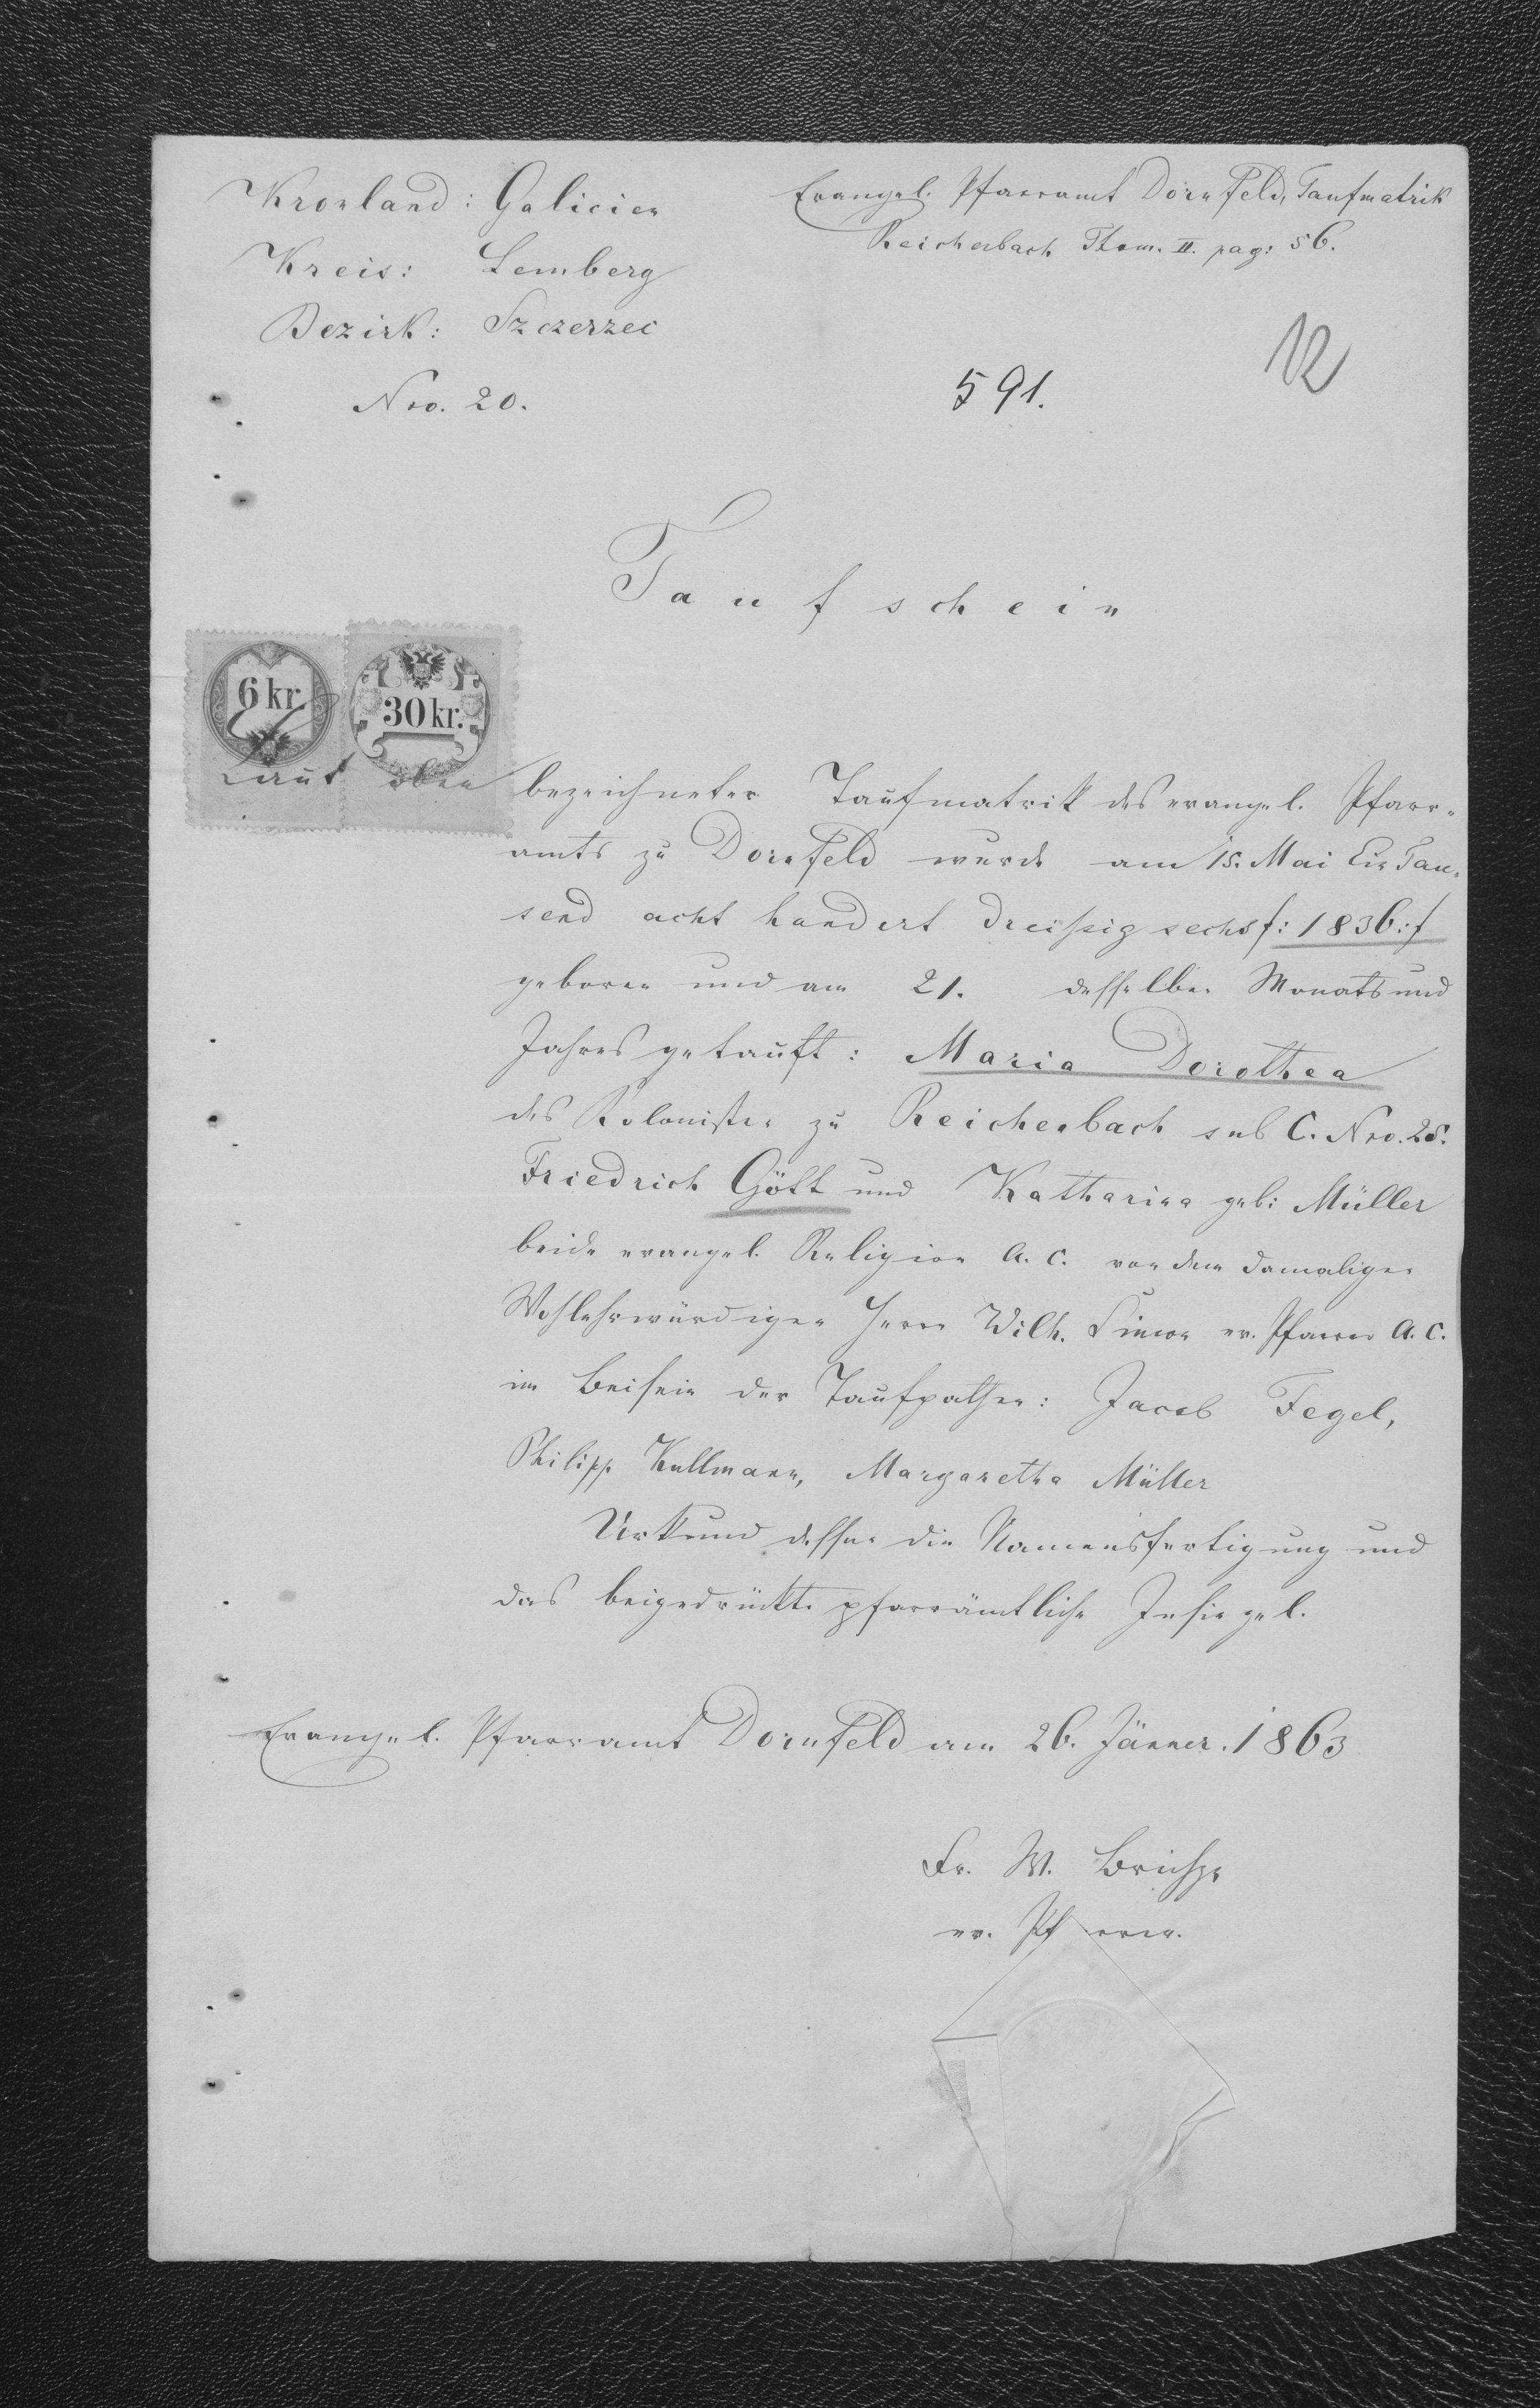 Kronland: Galicien
Kreis: Lemberg
Bezirk: Szczerzec
Nro. 20.
Evangel. Pfarramt Dornfeld, Taufmatrik
Reichenbach Thom. II. pag: 56.
591.
12
Taufschein
6 kr.
30 kr.
Laut oben bezeichneter Taufmatrik des evangel. Pfarr-
amts zu Dornfeld wurde am 15. Mai Ein Tau-
send acht hundert dreißig sechs /: 1836 :/
geboren und am 21. desselben Monats und
Jahres getauft: Maria Dorothea
des Kolonisten zu Reichenbach sub C. Nro. 25.
Friedrich Gött und Katharina geb: Müller
beide evangel. Religion A. C. von dem damaligen
Wohlehrwürdigen Herrn Wilh. Simon ev. Pfarrer A. C.
im Beisein der Taufpathen: Jacob Fegel,
Philipp Kullmann, Margaretha Müller
Urkund dessen die Namensfertigung und
das beigedrückte pfarrämtliche Insiegel.
Evangel. Pfarramt Dornfeld am 26. Jänner. 1863
Fr. W.
ev. Pfarrer.